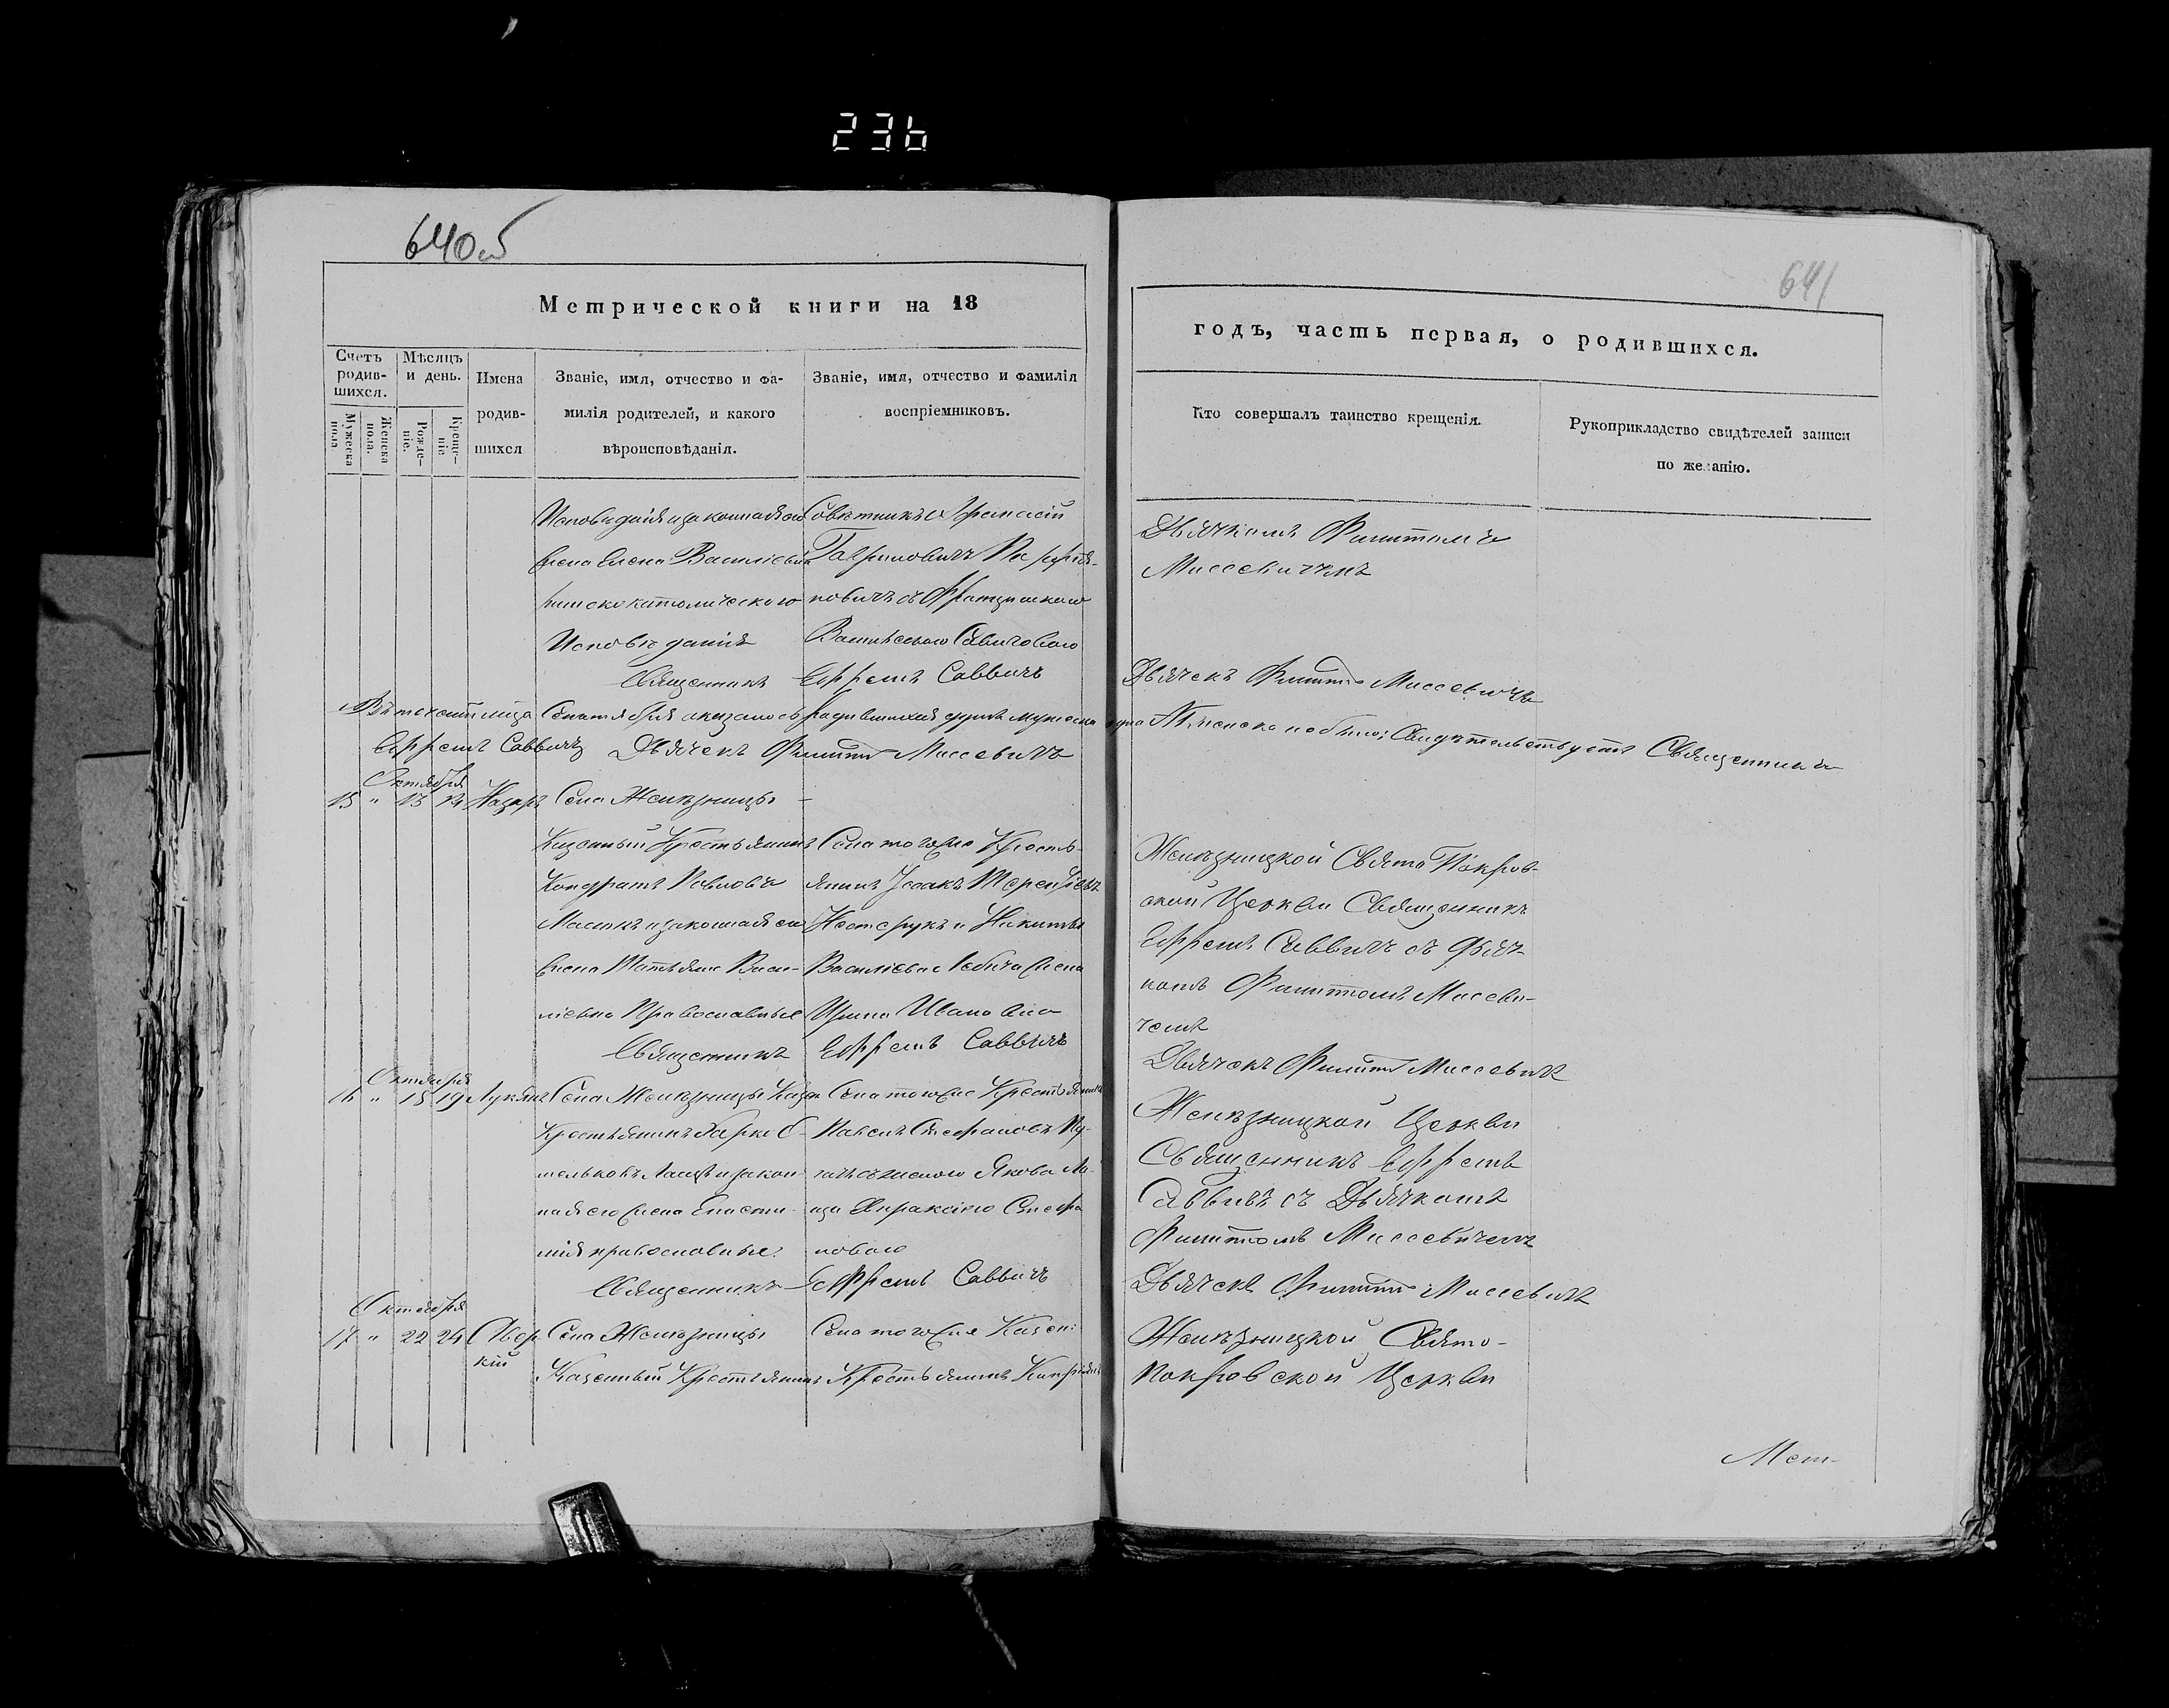 236
640об
641
Метрической книги на 18
годъ, часть первая, о родившихся.
Счетъ родив-шихся.
Мужеска пола
Женска пола.
Мѣсяцъ и день.
Рожде-ніе.
Креще-ніе
Имена
родив-
шихся
Званіе, имя, отчество и фа-
милія родителей, и какого
вѣроисповѣданія.
Званіе, имя, отчество и фамилія
воспріемниковъ.
Кто совершалъ таинство крещенія.
Рукоприкладство свидѣтелей записи
по желанію.
Исповеданія и законная его
жена Елена Василіевна
римско католическаго
Исповѣданія
Совѣтникъ Афанасій
Гавриловичъ
новичъ съ Францишкою
Савичовою
Дьячкомъ Филиппомъ
Массевичемъ
Священникъ Ефремъ Саввичъ
Дьячекъ Филиппъ Массевичъ
Сентября мужеска пола А женска небыло; Свидѣтельствуетъ Священникъ
Ефремъ Саввичъ Дьячекъ Филиппъ Массевичъ
Октября
15 " 13 14 Назаръ
Села Желѣзницы
Казенный Крестьянинъ
Кондратъ Павловъ
и законная его
жена Татьяна Васи-
ліевна Православные
Села тогоже Кресть-
янинъ Терентіевъ
Нестерукъ и Никиты
Василіева жена
Ирина Иванова
Желѣзницкой Свято Покров-
ской Церкви Священникъ
Ефремъ Саввичъ съ Дьяч-
комъ Филиппомъ Массеви-
чемъ
Священникъ Ефремъ Саввичъ
Дьячекъ Филиппъ Массевичъ
Октября
16 " 15 19 Лукіанъ
Села Желѣзницы Казен
Крестьянинъ
и закон-
ная его жена
мія православные.
Села тогоже Крестьянинъ
Стефановъ
Якова
Стефа
новою
Желѣзницкой Церкви
Священникъ Ефремъ
Саввичъ съ Дьячкомъ
Филиппомъ Массевичемъ
Священникъ Ефремъ Саввичъ
Дьячекъ Филиппъ Массевичъ
Октября
17 " 22 24 Авер
кій
Села Желѣзницы
Казенный Крестьянинъ
Села тогоже Казен:
Крестьянинъ Кипріянъ
Желѣзницкой Свято-
Покровской Церкви
Мет-